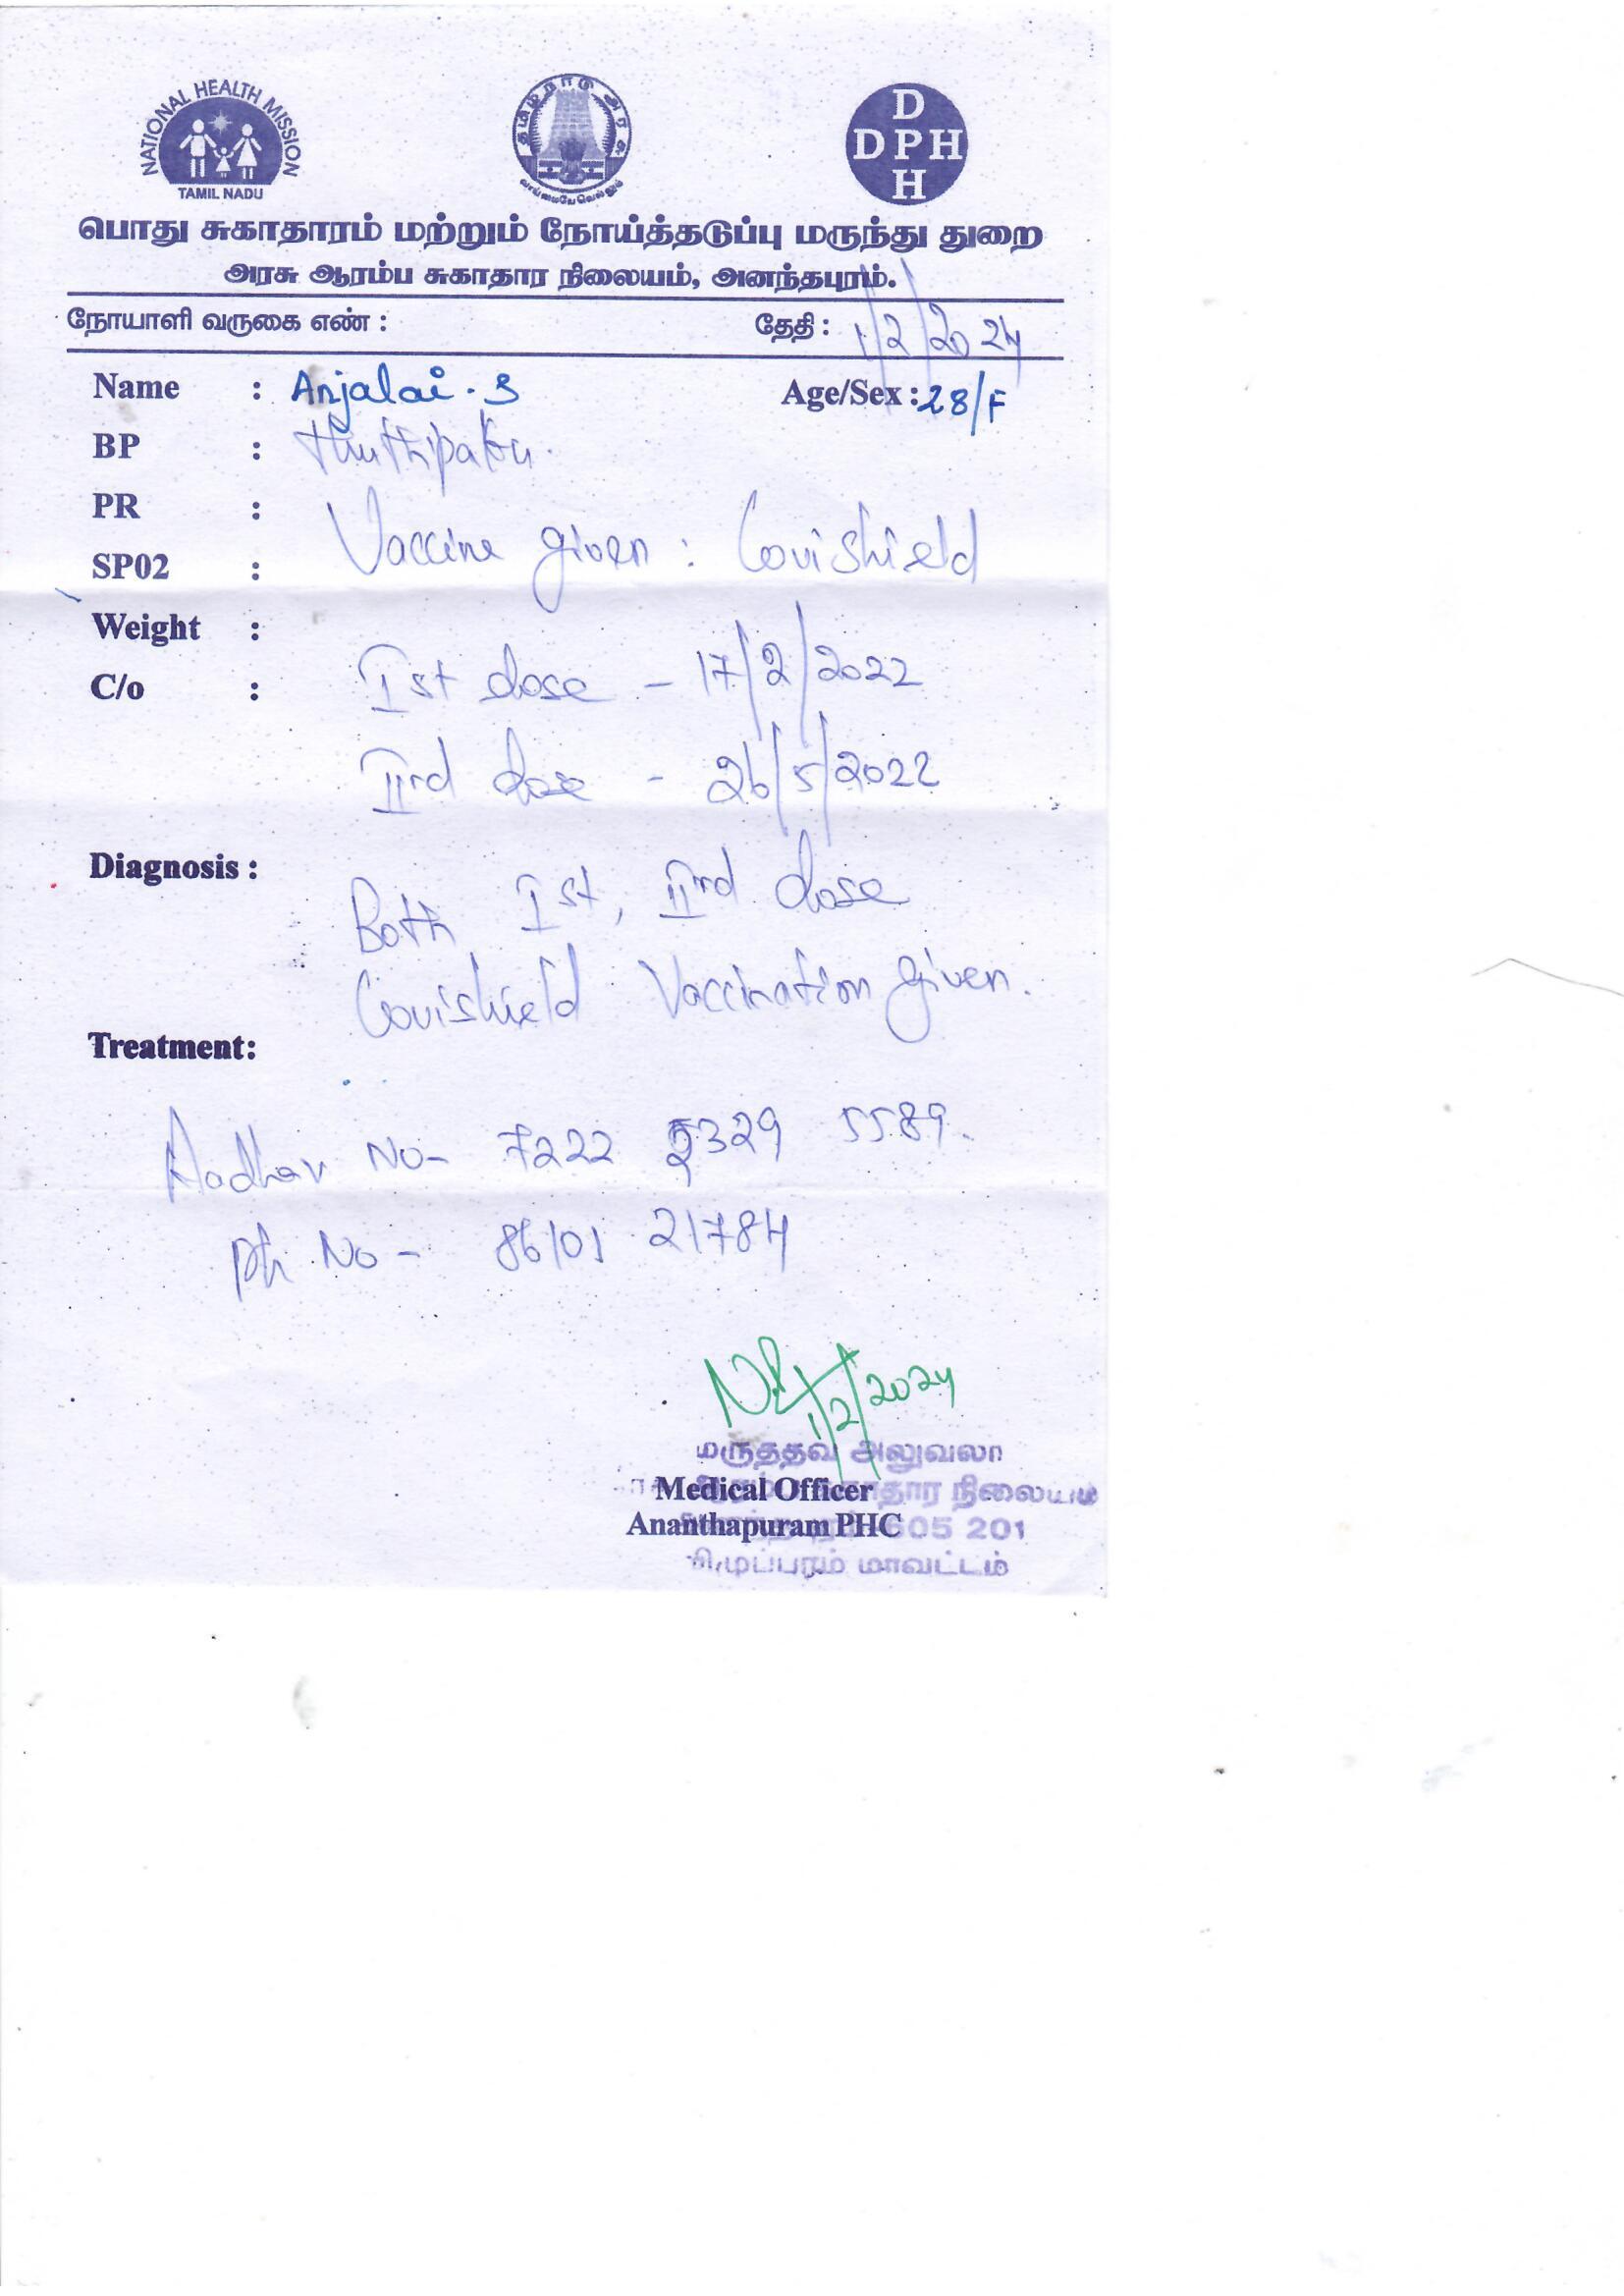 NATIONAL HEALTH MISSION
TAMIL NADU
தமிழ்நாடு அரசு
வாய்மையே வெல்லும்
D
DPH
H
பொது சுகாதாரம் மற்றும் நோய்த்தடுப்பு மருந்து துறை
அரசு ஆரம்ப சுகாதார நிலையம், அனந்தபுரம்.
நோயாளி வருகை எண் : தேதி : 1/2/2024
Name : Anjalai . S Age/Sex : 28/F
BP : Thuthipattu.
PR :
Vaccine given : Covishield
SP02 :
Weight :
Ist dose - 17/2/2022
C/o :
IIrd dose - 26/5/2022
Diagnosis :
Both Ist, IIrd dose
Covishield Vaccination given.
Treatment:
Aadhar No- 7222 5589.
Ph No - 86101 21784
1/2/2024
மருத்துவ அலுவலர்
Medical Officer சுகாதார நிலையம்
Ananthapuram PHC 605 201
விழுப்புரம் மாவட்டம்